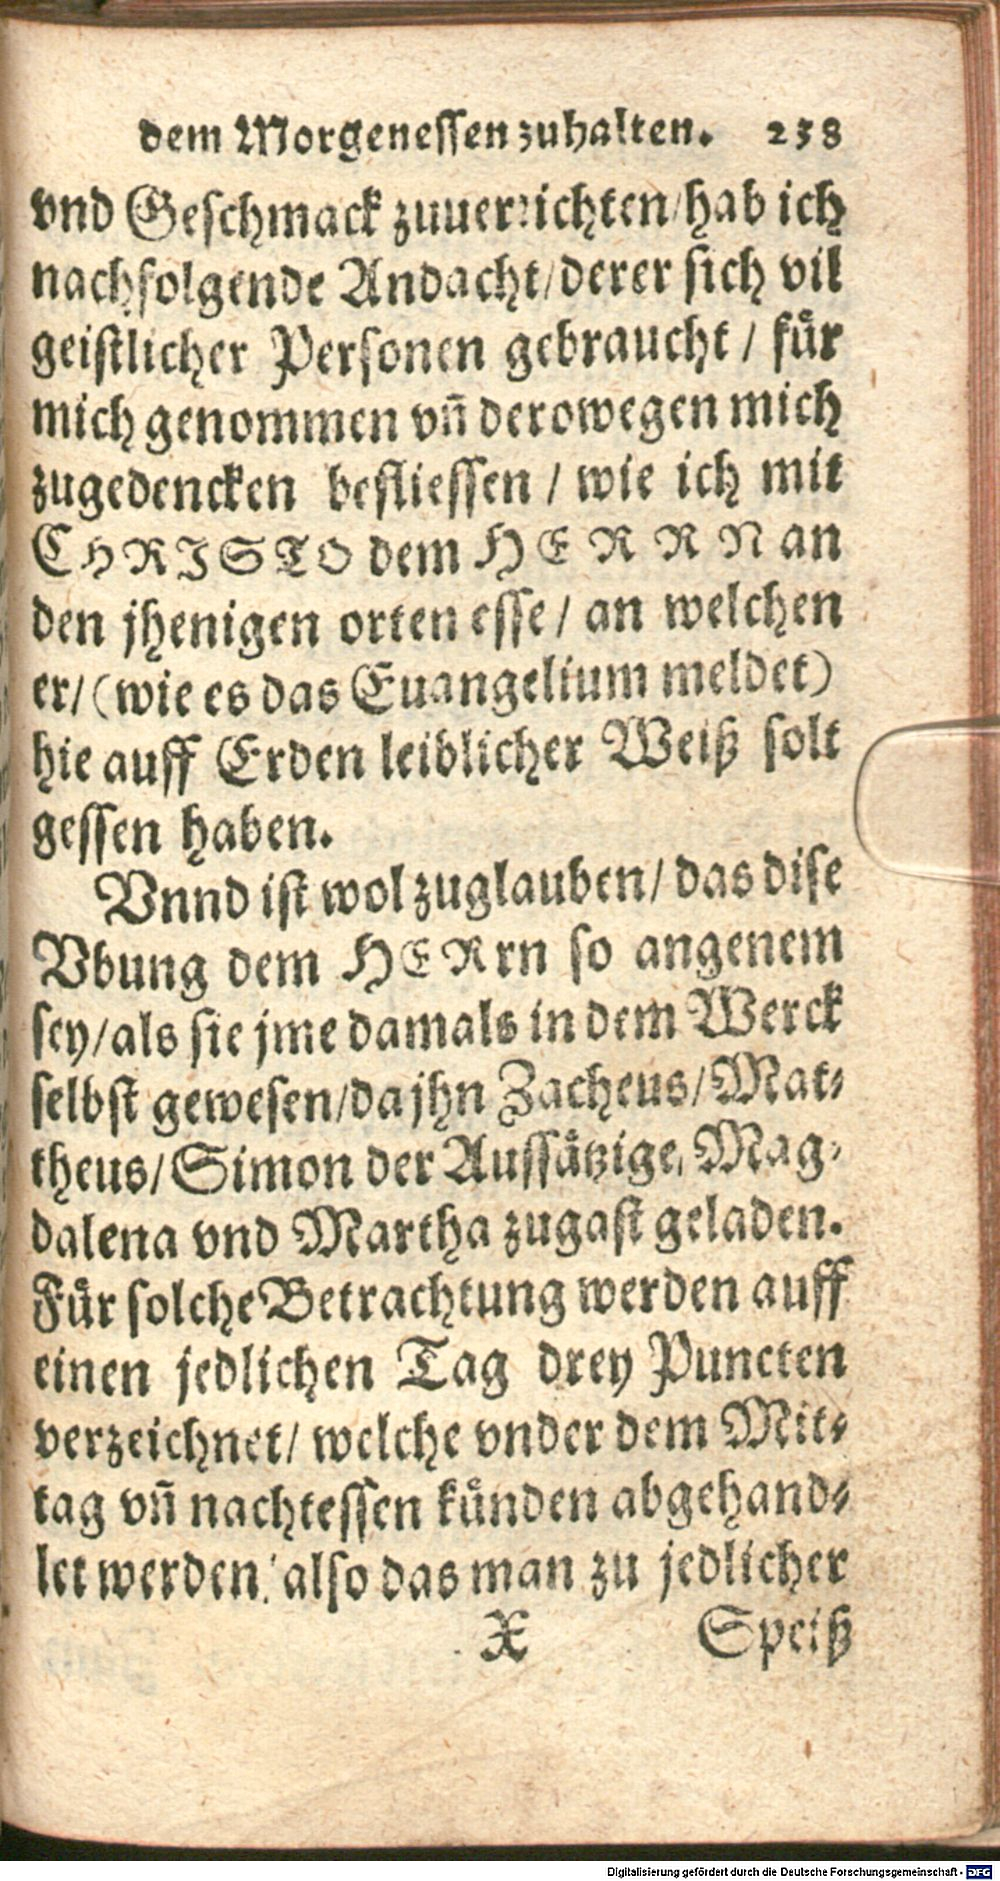 dem Morgenessen zuhalten. 258
vnd Geschmack zuuerrichten/ hab ich
nachfolgende Andacht/ derer sich vil
geistlicher Personen gebraucht / für
mich genommen vñ derowegen mich
zugedencken befliessen / wie ich mit
CHRISTO dem HERRN an
den jhenigen orten esse / an welchen
er/ (wie es das Euangelium meldet)
hie auff Erden leiblicher Weiß solt
gessen haben.
Vnnd ist wol zuglauben/ das dise
Vbung dem HERrn so angenem
sey/ als sie jme damals in dem Werck
selbst gewesen/ da jhn Zacheus/ Mat-
theus/ Simon der Aussätzige, Mag-
dalena vnd Martha zugast geladen.
Für solche Betrachtung werden auff
einen jedlichen Tag drey Puncten
verzeichnet/ welche vnder dem Mit-
tag vñ nachtessen künden abgehand-
let werden: also das man zu jedlicher
X Speiß
Digitalisierung gefördert durch die Deutsche Forschungsgemeinschaft - DFG